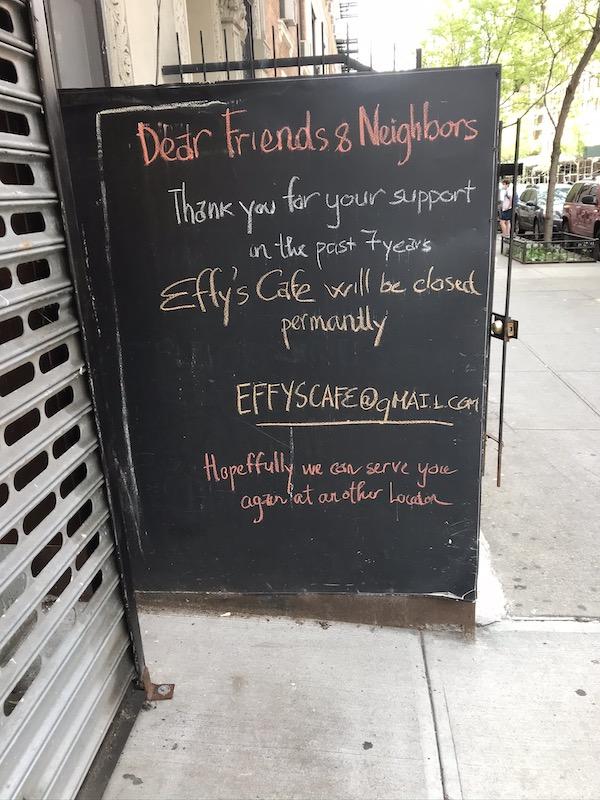 Dear Friends & Neighbors
Thank you for your support
in the past 7 years
Effy's Cafe will be closed
permantly
EFFYSCAFE@gMAIL.COM
Hopeffully we can serve you
again at another Location